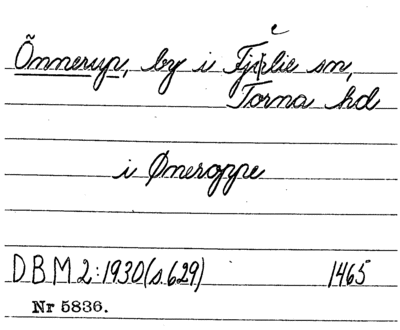 Õnnerup, by i Fjelie sn,
Torna hd
i Øneroppe
DBM 2:1930(s.629) 1465
Nr 5836.